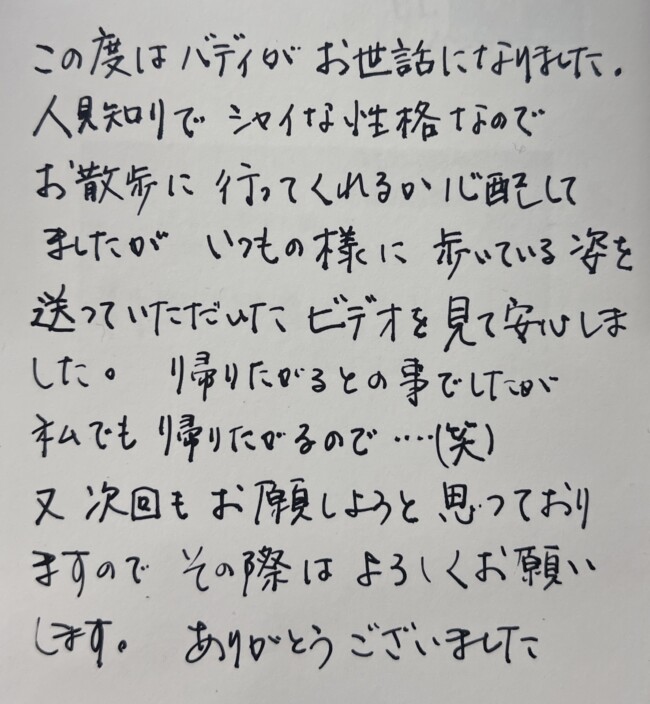 この度はバディがお世話になりました。
人見知りでシャイな性格なので
お散歩に行ってくれるか心配して
ましたがいつもの様に歩いている姿を
送っていただいたビデオを見て安心しま
した。帰りたがるとの事でしたが
私でも帰りたがるので・・・・(笑)
又次回もお願しようと思っており
ますのでその際はよろしくお願い
します。ありがとうございました